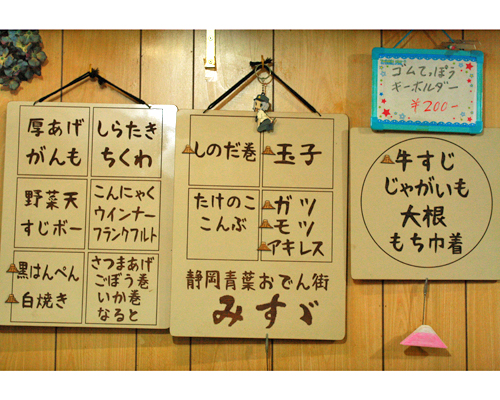 厚あげ
がんも
しらたき
ちくわ
野菜天
すじボー
こんにゃく
ウインナー
フランクフルト
黒はんぺん
白焼き
さつまあげ
ごぼう巻
いか巻
なると
しのだ巻
玉子
たけのこ
こんぶ
ガツ
モツ
アキレス
静岡青葉おでん街
みすゞ
ゴムてっぽう
キーホルダー
¥200-
牛すじ
じゃがいも
大根
もち巾着